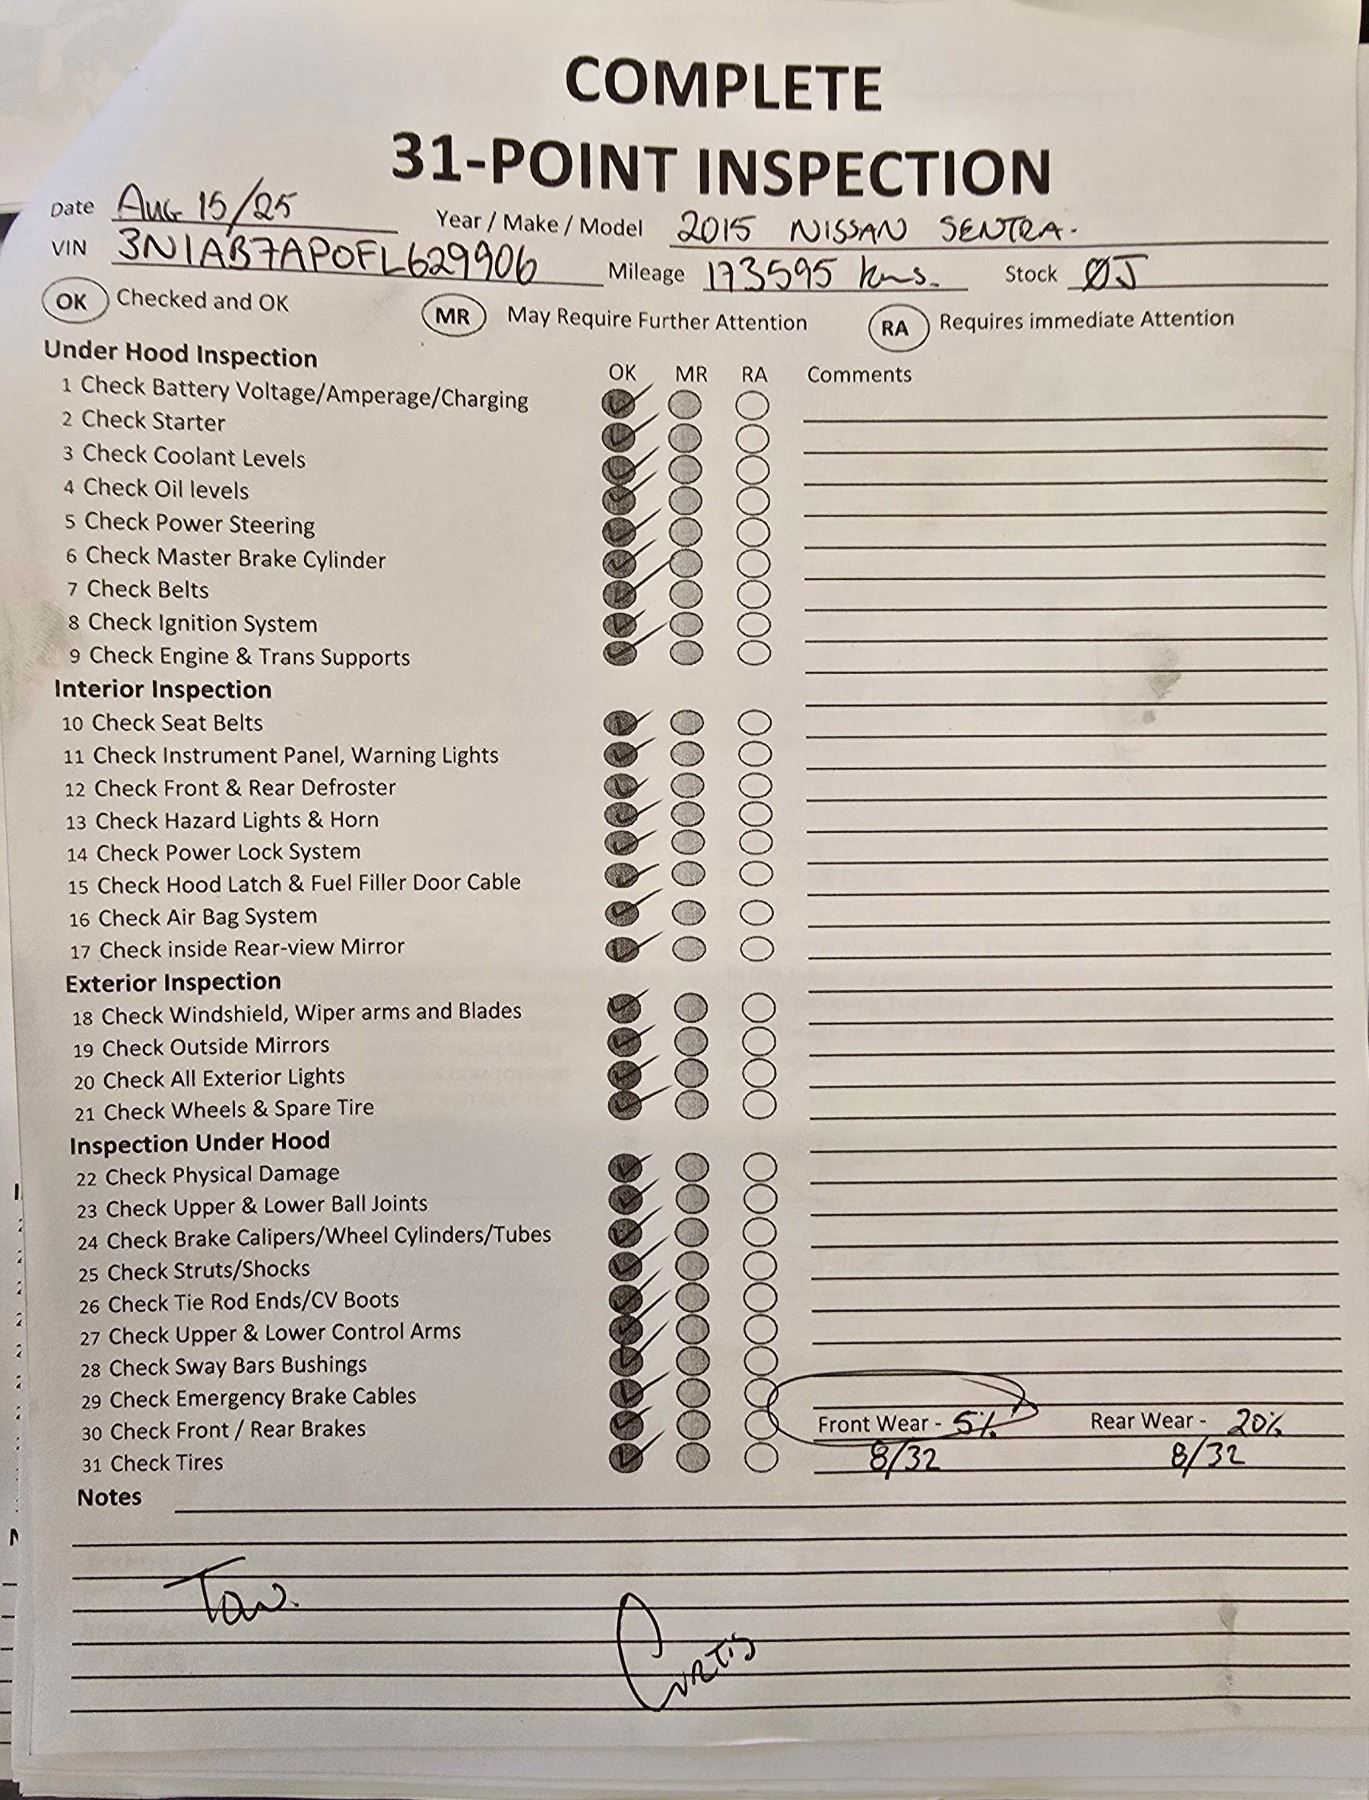 COMPLETE
31-POINT INSPECTION
Date Aug 15/25 Year / Make / Model 2015 NISSAN SENTRA.
VIN 3N1AB7AP0FL629906 Mileage 173595 kms. Stock ØJ
OK Checked and OK MR May Require Further Attention RA Requires immediate Attention
Under Hood Inspection
OK MR RA Comments
1 Check Battery Voltage/Amperage/Charging
2 Check Starter
3 Check Coolant Levels
4 Check Oil levels
5 Check Power Steering
6 Check Master Brake Cylinder
7 Check Belts
8 Check Ignition System
9 Check Engine & Trans Supports
Interior Inspection
10 Check Seat Belts
11 Check Instrument Panel, Warning Lights
12 Check Front & Rear Defroster
13 Check Hazard Lights & Horn
14 Check Power Lock System
15 Check Hood Latch & Fuel Filler Door Cable
16 Check Air Bag System
17 Check inside Rear-view Mirror
Exterior Inspection
18 Check Windshield, Wiper arms and Blades
19 Check Outside Mirrors
20 Check All Exterior Lights
21 Check Wheels & Spare Tire
Inspection Under Hood
22 Check Physical Damage
23 Check Upper & Lower Ball Joints
24 Check Brake Calipers/Wheel Cylinders/Tubes
25 Check Struts/Shocks
26 Check Tie Rod Ends/CV Boots
27 Check Upper & Lower Control Arms
28 Check Sway Bars Bushings
29 Check Emergency Brake Cables
30 Check Front / Rear Brakes Front Wear - 5% Rear Wear - 20%
31 Check Tires 8/32 8/32
Notes
Curtis